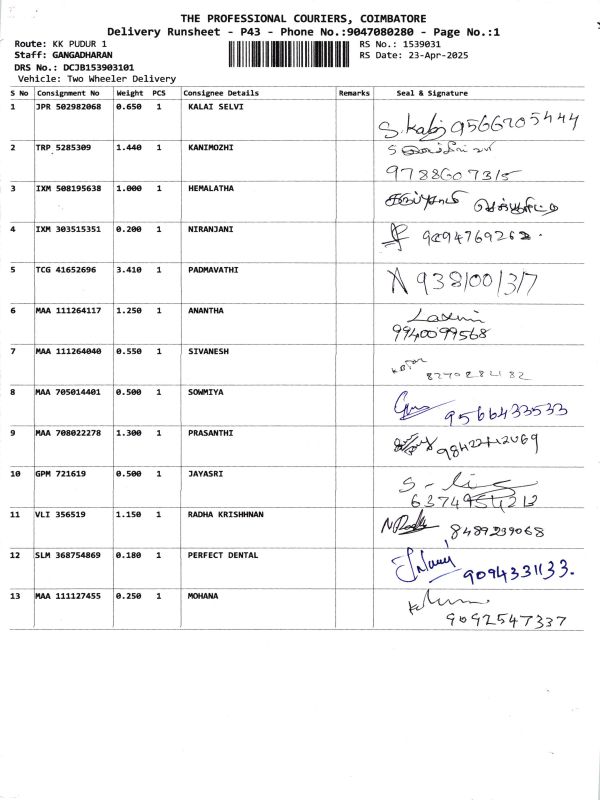 THE PROFESSIONAL COURIERS, COIMBATORE
Delivery Runsheet - P43 - Phone No.:9047080280 - Page No.:1
Route: KK PUDUR 1 RS No.: 1539031
Staff: GANGADHARAN RS Date: 23-Apr-2025
DRS No.: DCJB153903101
Vehicle: Two Wheeler Delivery
S No Consignment No Weight PCS Consignee Details Remarks Seal & Signature
1 JPR 502982068 0.650 1 KALAI SELVI
S. 9566705444
2 TRP 5285309 1.440 1 KANIMOZHI
9788607315
3 IXM 508195638 1.000 1 HEMALATHA
4 IXM 303515351 0.200 1 NIRANJANI
5 TCG 41652696 3.410 1 PADMAVATHI
N 9381001317
6 MAA 111264117 1.250 1 ANANTHA
Laxmi
9940099568
7 MAA 111264040 0.550 1 SIVANESH
8 MAA 705014401 0.500 1 SOWMIYA
9566433533
9 MAA 708022278 1.300 1 PRASANTHI
10 GPM 721619 0.500 1 JAYASRI
11 VLI 356519 1.150 1 RADHA KRISHHNAN
8489239068
12 SLM 368754869 0.180 1 PERFECT DENTAL
9094331133.
13 MAA 111127455 0.250 1 MOHANA
9092547337